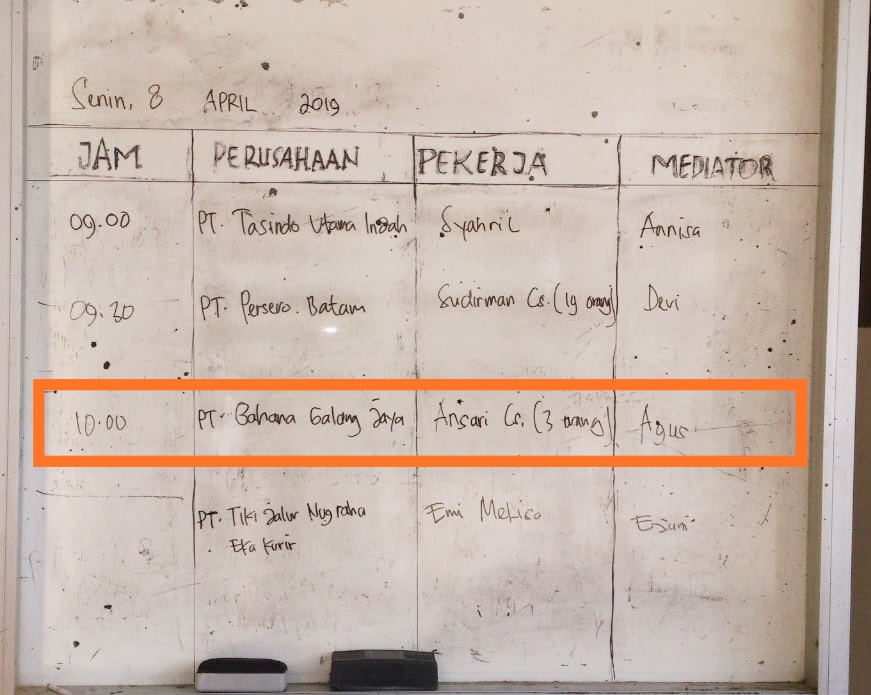 Senin, 8 APRIL 2019
JAM PERUSAHAAN PEKERJA MEDIATOR
09.00 PT. Tasindo Utama Indah Syahril Annisa
09.30 PT. Persero. Batam Sudirman Cs. (19 orang) Devi
10.00 PT. Bahana Galang Jaya Ansari Cs. (3 orang) Agus
PT. Tiki Jalur Nugraha Emi
Eka Kurir